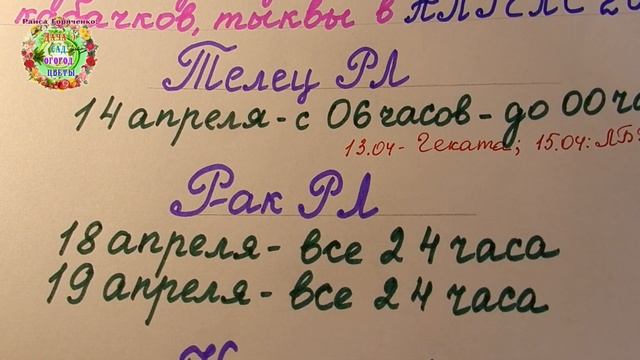 Раиса Горяченко
ДАЧА
САД
ОГОРОД
ЦВЕТЫ
кабачков, тыквы в АПРЕЛЕ 20
Телец РЛ
14 апреля - с 06 часов - до 00 ча
13.04 - Геката; 15.04: ЛБ
Рак РЛ
18 апреля - все 24 часа
19 апреля - все 24 часа